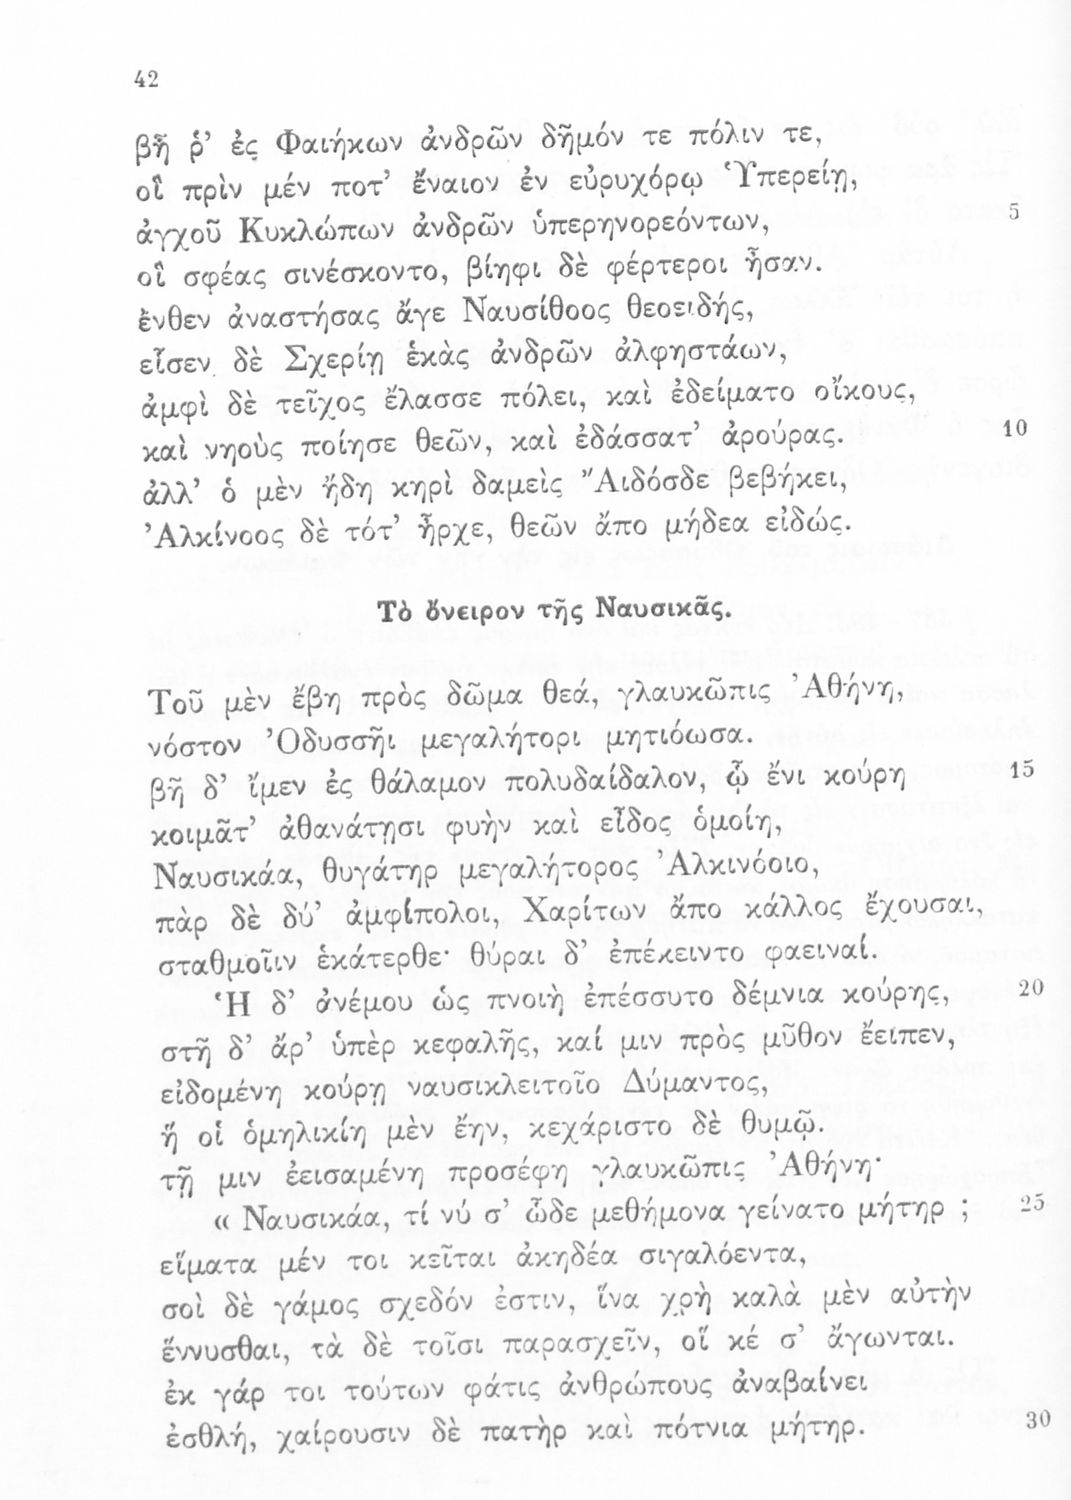 42
βῆ ῥ’ ἐς Φαιήκων ἀνδρῶν δῆμόν τε πόλιν τε,
οἳ πρὶν μέν ποτ’ ἔναιον ἐν εὐρυχόρῳ Ὑπερείῃ,
ἀγχοῦ Κυκλώπων ἀνδρῶν ὑπερηνορεόντων, 5
οἳ σφέας σινέσκοντο, βίηφι δὲ φέρτεροι ἦσαν.
ἔνθεν ἀναστήσας ἄγε Ναυσίθοος θεοειδής,
εἷσεν δὲ Σχερίῃ ἑκὰς ἀνδρῶν ἀλφηστάων,
ἀμφὶ δὲ τεῖχος ἔλασσε πόλει, καὶ ἐδείματο οἴκους,
καὶ νηοὺς ποίησε θεῶν, καὶ ἐδάσσατ’ ἀρούρας. 10
ἀλλ’ ὁ μὲν ἤδη κηρὶ δαμεὶς Ἄιδόσδε βεβήκει,
Ἀλκίνοος δὲ τότ’ ἦρχε, θεῶν ἄπο μήδεα εἰδώς.
Τὸ ὄνειρον τῆς Ναυσικᾶς.
Τοῦ μὲν ἔβη πρὸς δῶμα θεά, γλαυκῶπις Ἀθήνη,
νόστον Ὀδυσσῆι μεγαλήτορι μητιόωσα.
βῆ δ’ ἴμεν ἐς θάλαμον πολυδαίδαλον, ᾧ ἔνι κούρη 15
κοιμᾶτ’ ἀθανάτῃσι φυὴν καὶ εἶδος ὁμοίη,
Ναυσικάα, θυγάτηρ μεγαλήτορος Ἀλκινόοιο,
πὰρ δὲ δύ’ ἀμφίπολοι, Χαρίτων ἄπο κάλλος ἔχουσαι,
σταθμοῖιν ἑκάτερθε· θύραι δ’ ἐπέκειντο φαειναί.
Ἡ δ’ ἀνέμου ὡς πνοιὴ ἐπέσσυτο δέμνια κούρης, 20
στῆ δ’ ἄρ’ ὑπὲρ κεφαλῆς, καί μιν πρὸς μῦθον ἔειπεν,
εἰδομένη κούρῃ ναυσικλειτοῖο Δύμαντος,
ἥ οἱ ὁμηλικίη μὲν ἔην, κεχάριστο δὲ θυμῷ.
τῇ μιν ἐεισαμένη προσέφη γλαυκῶπις Ἀθήνη·
« Ναυσικάα, τί νύ σ’ ὧδε μεθήμονα γείνατο μήτηρ ; 25
εἵματα μέν τοι κεῖται ἀκηδέα σιγαλόεντα,
σοὶ δὲ γάμος σχεδόν ἐστιν, ἵνα χρὴ καλὰ μὲν αὐτὴν
ἕννυσθαι, τὰ δὲ τοῖσι παρασχεῖν, οἵ κέ σ’ ἄγωνται.
ἐκ γάρ τοι τούτων φάτις ἀνθρώπους ἀναβαίνει
ἐσθλή, χαίρουσιν δὲ πατὴρ καὶ πότνια μήτηρ. 30